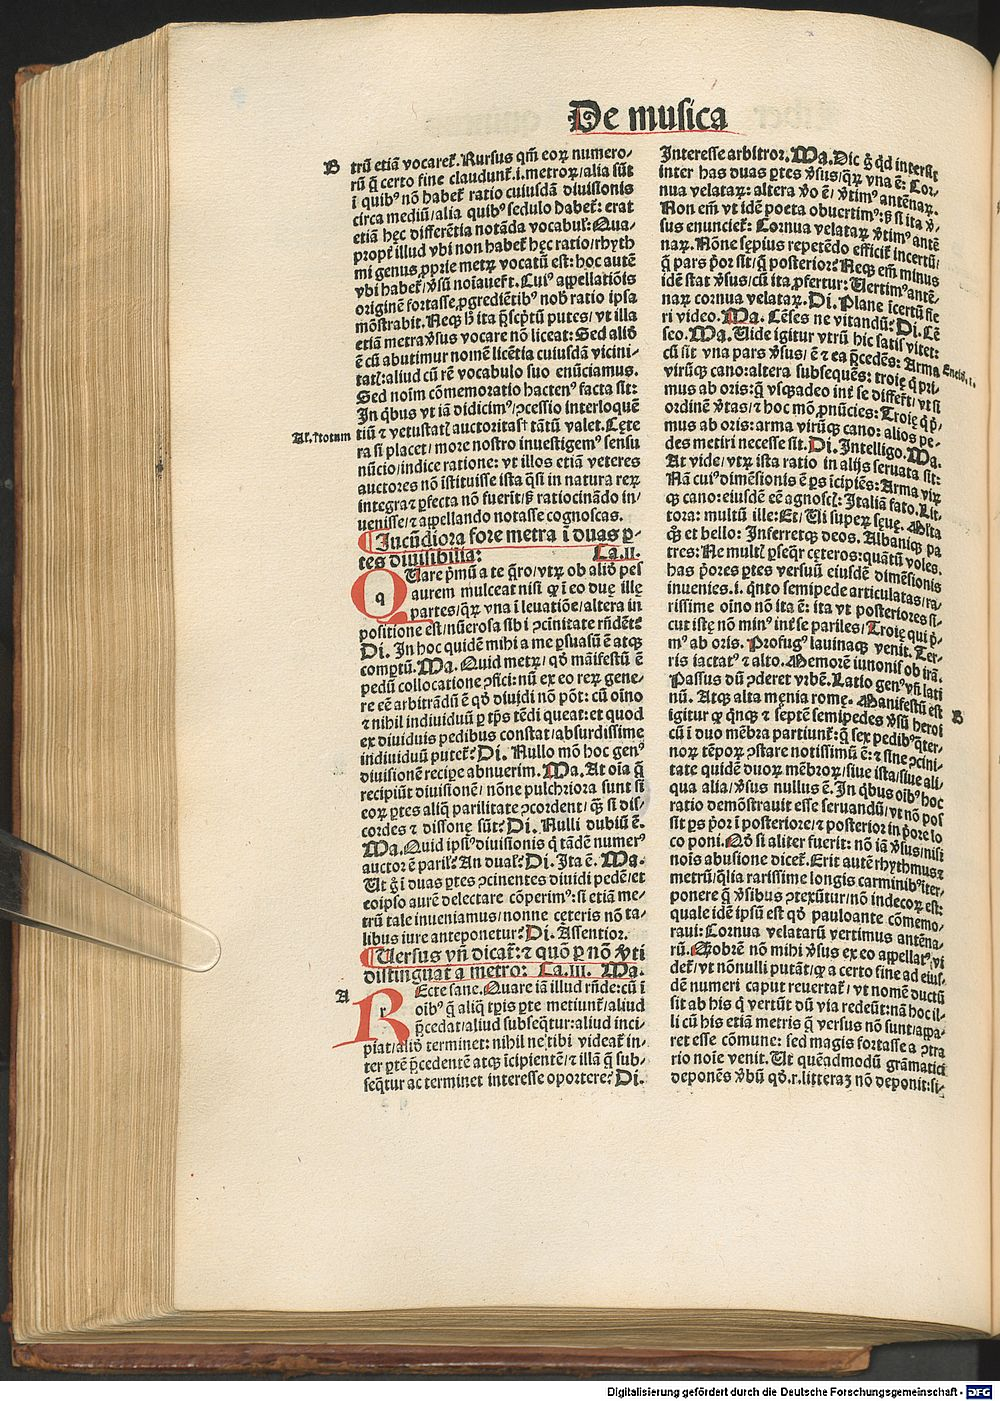 De musica
B
trũ etiã vocaret᷑. Rursus qm̃ eoꝝ numero-
rũ q̃ certo fine claudunt᷑.i.metroꝝ/alia sũt
ĩ quibꝰ nõ habet᷑ ratio cuiusdã diuisionis
circa mediũ/alia quibꝰ sedulo habet᷑: erat
etiã hęc differẽtia notãda vocabuł:Qua-
propt᷑ illud vbi non habet᷑ hęc ratio/rhyth
mi genus ꝓprie metꝝ vocatũ est: hoc autẽ
vbi habet᷑/v̾sũ noiauer̃t. Cuiꝰ appellatiõis
originẽ fortasse ꝓgrediẽtibꝰ nob̃ ratio ipsa
mõstrabit. Neqꝫ h̃ ita p̃scp̃tũ putes/ vt illa
etiã metra v̾sus vocare nõ liceat: Sed aliđ
ẽ cũ abutimur nomẽ licẽtia cuiusdã vicini-
tatꝭ:aliud cũ rẽ vocabulo suo enũciamus.
Sed noim cõmemoratio hactenꝰ facta sit:
In qbꝰ vt iã didicimꝰ/ꝯcessio interloquẽ
Al. ꝉtotum
tiũ ⁊ vetustatꝭ auctoritas† tãtũ valet. Cęte
ra si placet/ more nostro inuestigemꝰ sensu
nũcio/indice ratione: vt illos etiã veteres
auctores nõ ĩstituisse ista q̃si in natura reꝝ
integra ⁊ ꝑfecta nõ fuerit/ß ratiocinãdo in/
uenisse/⁊ appellando notasse cognoscas.
¶Jucũdiora fore metra ĩ duas ꝑ-
tes diuisibilia: Ca.II.
QUare p̃mũ a te q̃ro/vtꝝ ob aliđ pes
q
aurem mulceat nisi ꝙ ĩ eo duę illę
partes/qꝝ vna ĩ leuatiõe/altera in
positione est/nũerosa sibi ꝯcinitate rñdẽt?
Di. In hoc quidẽ mihi a me ꝑsuasũ ẽ atqꝫ
comptũ. Ma. Quid metꝝ/ qđ mãifestũ ẽ
pedũ collocatione ꝯfici: nũ ex eo reꝝ gene-
re eẽ arbitrãdũ ẽ qđ diuidi nõ põt: cũ oĩno
⁊ nihil indiuiduũ ꝑ tp̃s tẽdi queat: et quod
ex diuiduis pedibus constat/absurdissime
indiuiduũ putet᷑? Di. Nullo mõ hoc genꝰ
diuisionẽ recipe abnuerim. Ma. At oĩa q̃
recipiũt diuisionẽ/ nõne pulchriora sunt si
eoꝝ ꝑtes aliq̃ parilitate ꝯcordent/ q̃ꝫ si dis-
cordes ⁊ dissonę sũt? Di. Nulli dubiũ ẽ.
Ma. Quid ipsiꝰ diuisionis q̃ tãdẽ numerꝰ
auctor ẽ parił? An dual᷑? Di. Ita ẽ. Ma.
Ut g̃ ĩ duas ꝑtes ꝯcinentes diuidi pedẽ/et
eoipso aurẽ delectare cõperimꝰ: si etiã me-
trũ tale inueniamus/ nonne cęteris nõ ta-
libus iure anteponetur? Di. Assentior.
¶Uersus vñ dicat᷑: ⁊ quõ ꝑ nõ v̾ti
distinguat a metro: Ca.III. Ma.
A
REcte sane. Quare iã illud rñde: cũ ĩ
r
oibꝰ q̃ aliq̃ tp̃is ꝑte metiunt᷑/aliud
p̃cedat/aliud subseqt̃ur:aliud inci
piat/aliđ terminet: nihil ne tibi videat᷑ in-
ter ꝑtẽ p̃cedentẽ atqꝫ ĩcipientẽ/⁊ illã q̃ sub-
seqt̃ur ac terminet interesse oportere? Di.
Interesse arbitror. Ma. Dic g̃ qđ intersit
inter has duas ꝑtes v̾sus/qꝝ vna ẽ: Cor-
nua velataꝝ: altera v̾o ẽ/ v̾timꝰ antẽnaꝝ.
Non em̃ vt idẽ poeta obuertimꝰ: ß si ita v̾-
sus enunciet᷑: Cornua velataꝝ v̾timꝰ antẽ
naꝝ. Nõne sępius repetẽdo efficit᷑ incertũ/
q̃ pars p̃or sit/ q̃ posterior? Neqꝫ em̃ minus
idẽ stat v̾sus/cũ ita ꝓfertur: Uertimꝰ antẽ-
naꝝ cornua velataꝝ. Di. Plane ĩcertũ fie
ri video. Ma. Cẽses ne vitandũ? Di. Cẽ
seo. Ma. Uide igitur vtrũ hic satis vitet᷑:
cũ sit vna pars v̾sus/ ẽ ⁊ ea p̃cedẽs: Arma
Eneid.1.
virũqꝫ cano:altera subsequẽs: troię q̃ pri-
mus ab oris: q̃ vsqꝫadeo int᷑ se differt᷑/ vt si
ordinẽ v̾tas/ ⁊ hoc mõ ꝓnũcies: Troię q̃ p̃/
mus ab oris: arma virũqꝫ cano: alios pe-
des metiri necesse sit. Di. Intelligo. Ma.
At vide/ vtꝝ ista ratio in alijs seruata sit:
Nã cuiꝰ dimẽsionis ẽ ꝑs ĩcipiẽs: Arma viꝝ
qꝫ cano: eiusdẽ eẽ agnoscꝭ: Italiã fato. Lit
tora: multũ ille: Et/ Ui supeꝝ sęuę. Mlta
q̃ꝫ et bello: Inferretqꝫ deos. Albaniqꝫ pa
tres: Ne multꝭ ꝑseqr̃ cęteros: quãtũ voles.
has p̃ores ꝑtes versuũ eiusdẽ dimẽsionis
inuenies.i. q̃nto semipede articulatas/ra/
rissime oĩno nõ ita ẽ: ita vt posteriores si-
cut istę nõ minꝰ int᷑ se pariles/ Troię qui p̃-
mꝰ ab oris. Profugꝰ lauinaqꝫ venit. Ter-
ris iactatꝰ ⁊ alto. Memorẽ iunonis ob irã.
Passus dũ ꝯderet vrbẽ. Latio genꝰ vñ lati
nũ. Atqꝫ alta męnia romę. Manifestũ est
B
igitur ꝙ q̃nqꝫ ⁊ septẽ semipedes v̾sũ heroi
cũ ĩ duo mẽbra partiunt᷑: q̃ sex pedibꝰ qter-
noꝝ tẽpoꝝ ꝯstare notissimũ ẽ: ⁊ sine ꝯcini-
tate quidẽ duoꝝ mẽbroꝝ/siue ista/siue ali-
qua alia/v̾sus nullus ẽ. In qbus oibꝰ hoc
ratio demõstrauit esse seruandũ/ vt nõ pos
sit ꝑs p̃or ĩ posteriore/⁊ posterior in p̃ore lo
co poni. Qđ si aliter fuerit: nõ iã v̾sus/nisi
nois abusione dicet᷑. Erit autẽ rhythmus ⁊
metrũ/qlia rarissime longis carminibꝰ iter-
ponere q̃ v̾sibus ꝯtexũtur/nõ indecoꝝ est:
quale idẽ ipsũ est qđ pauloante cõmemo-
raui: Cornua velatarũ vertimus antẽna-
rũ. Qobrẽ nõ mihi v̾sus ex eo appellatꝰ/vi
det᷑/ vt nõnulli putãt/ꝙ a certo fine ad eius-
dẽ numeri caput reuertat᷑/ vt nomẽ ductũ
sit ab his q̃ vertũt dũ via redeũt:nã hoc il-
li cũ his etiã metris q̃ versus nõ sunt/appa-
ret esse cõmune: sed magis fortasse a ꝯtra
rio noĩe venit. Ut quẽadmodũ grãmatici
deponẽs v̾bũ qđ.r.litteraꝫ nõ deponit: si-
Digitalisierung gefördert durch die Deutsche Forschungsgemeinschaft - DFG